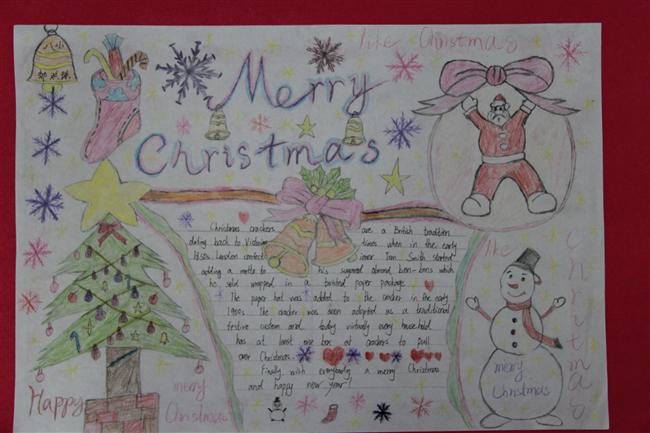 like Christmas
Merry
Christmas
Christmas crackers are a British tradition
dating back to Victorian times when in the early
1850s London confect ioner Tom Smith started
adding a motto to his sugared almond bon-bons which
he sold wrapped in a twisted paper package
The paper hat was added to the cracker in the early
1900s The cracker was soon adopted as a traditional
festive custom and today virtually every household
has at least one box of crackers to pull
over Christmas
Finally wish everybody a merry Christmas
and happy new year!
like
Christmas
merry
Christmas
Happy
merry
Christmas